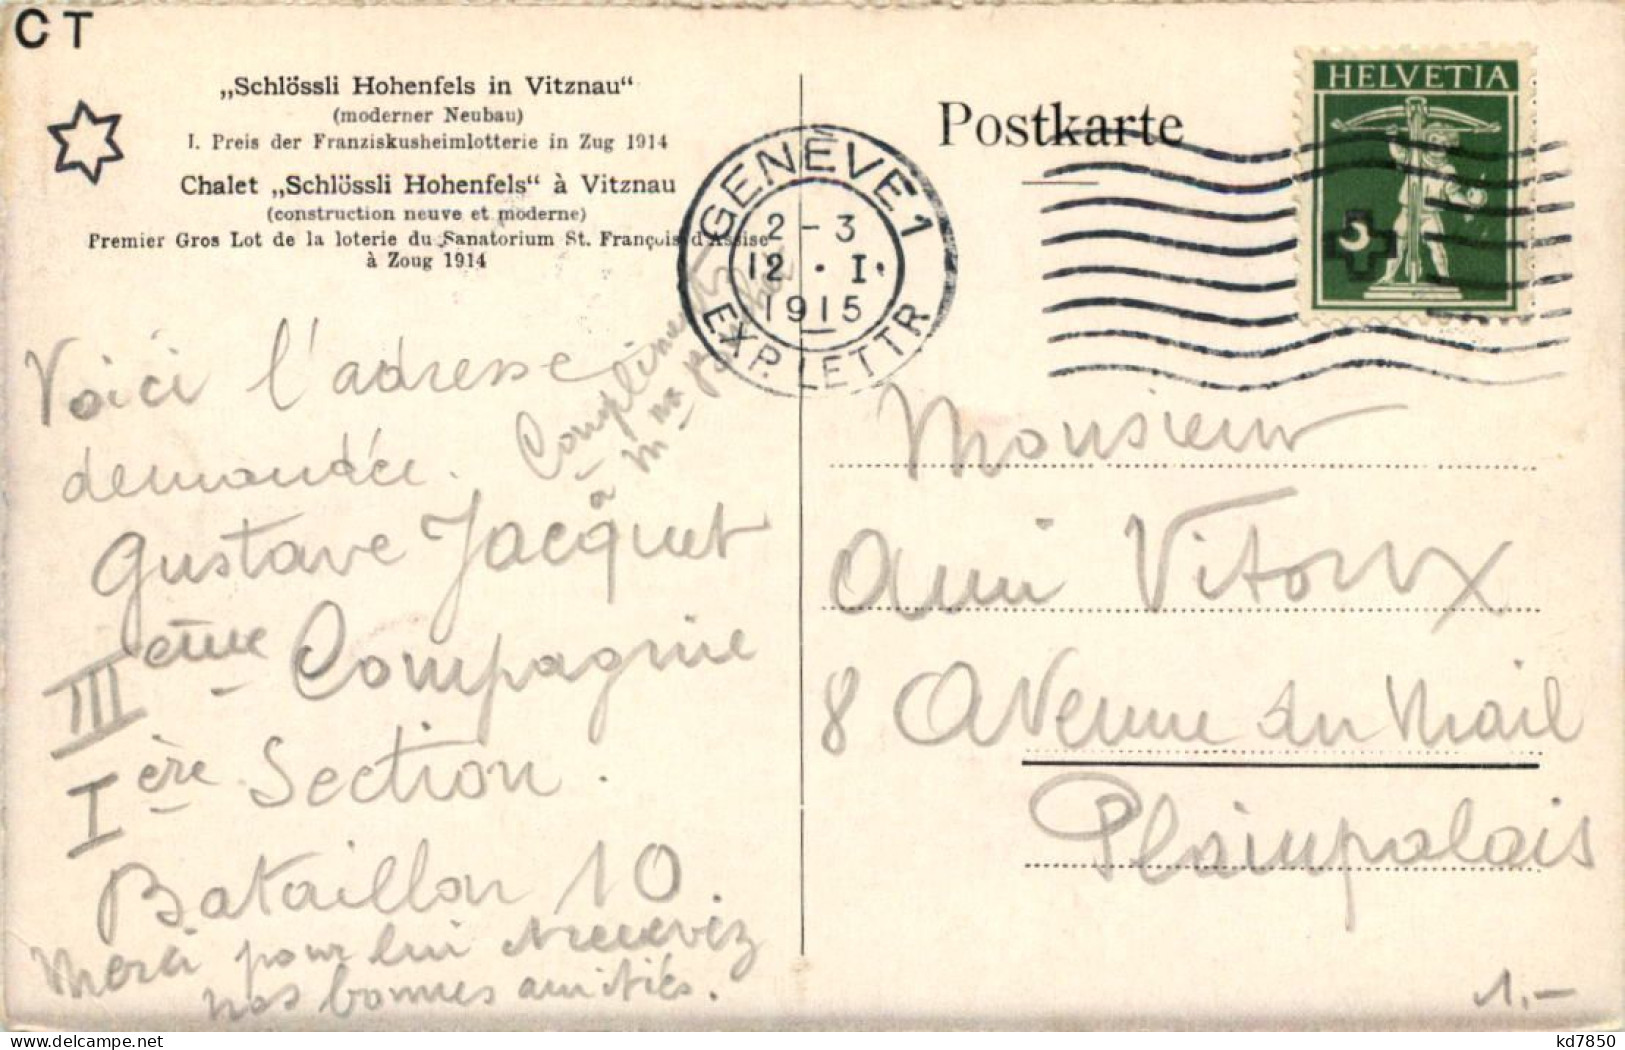 CT
„Schlössli Hohenfels in Vitznau“
(moderner Neubau)
I. Preis der Franziskusheimlotterie in Zug 1914
Chalet „Schlössli Hohenfels“ à Vitznau
(construction neuve et moderne)
Premier Gros Lot de la loterie du Sanatorium St. François d'Assise
à Zoug 1914
Voici l'adresse
demandée.
Gustave Jacquet
IIIème Compagnie
Ière Section.
Bataillon 10.
Merci pour lui recevez
nos bonnes amitiés.
à
Postkarte
GENÈVE 1
2-3
12.I.
1915
EXP. LETTR.
HELVETIA
5
Monsieur
Ami Vitoux
8 Avenue du Mail
Plainpalais
1.-
kd7850